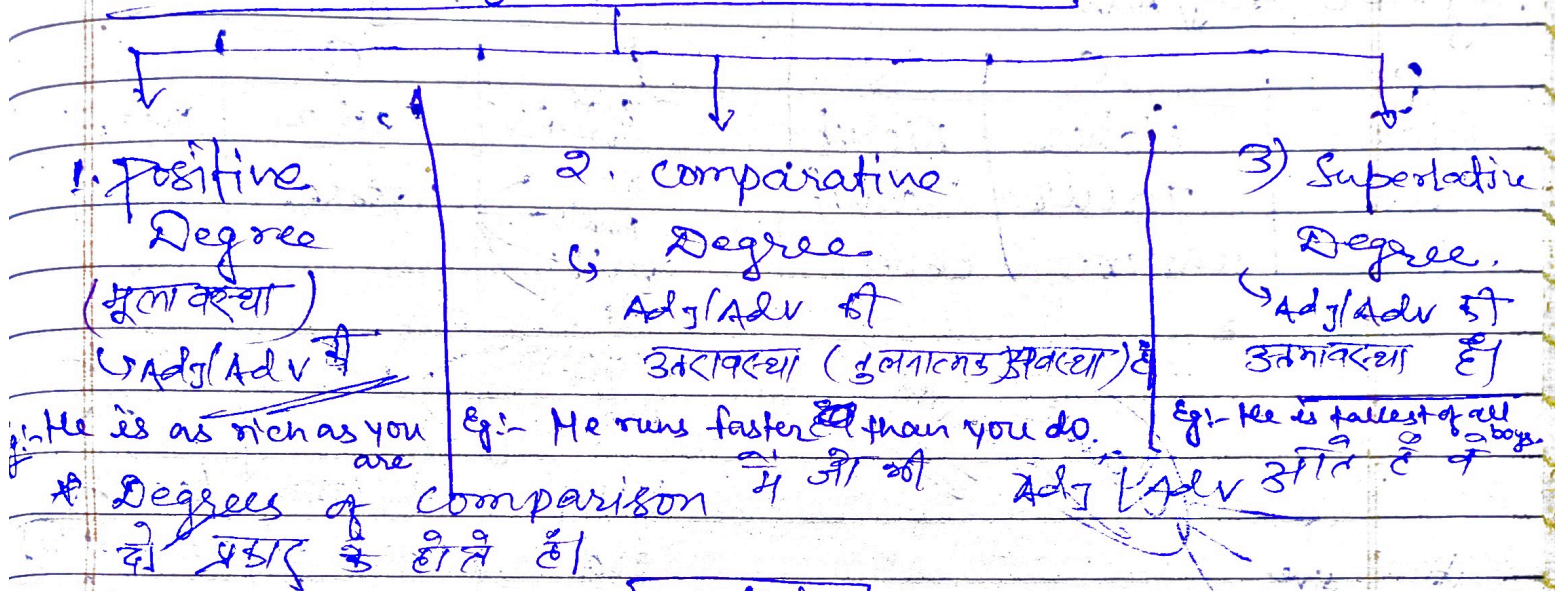 1. Positive Degree
(मूलावस्था)
↳ Adj/Adv की
Eg:- He is as rich as you are
2. Comparative
↳ Degree
Adj/Adv की
उत्तरावस्था (तुलनात्मक अवस्था) है
Eg:- He runs faster than you do.
3) Superlative
Degree.
↳ Adj/Adv की
उत्तमावस्था है।
Eg:- He is tallest of all boys.
* Degrees of Comparison में जो भी Adj/Adv आते हैं वे
दो प्रकार के होते हैं।